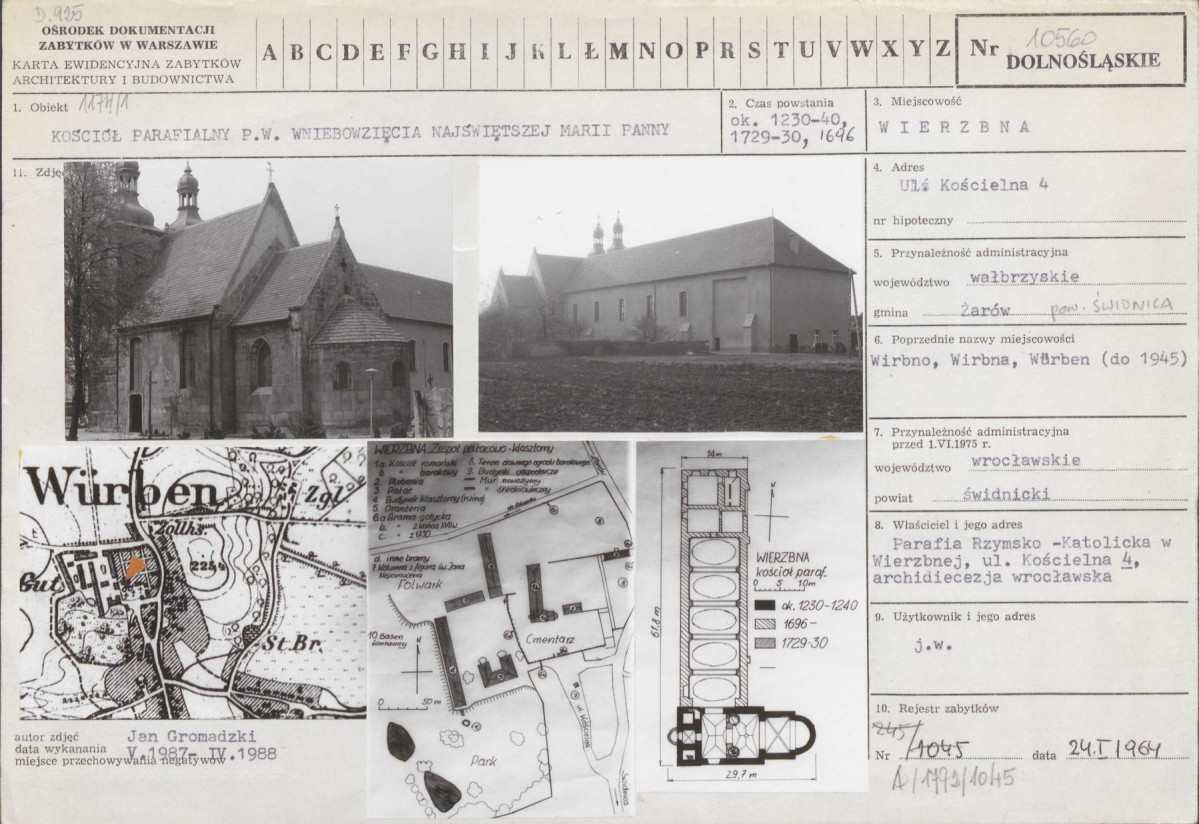 D.925
OŚRODEK DOKUMENTACJI
ZABYTKÓW W WARSZAWIE
KARTA EWIDENCYJNA ZABYTKÓW
ARCHITEKTURY I BUDOWNICTWA
A B C D E F G H I J K L Ł M N O P R S T U V W X Y Z
Nr 10560
DOLNOŚLĄSKIE
1. Obiekt 1174/1
KOŚCIÓŁ PARAFIALNY P.W. WNIEBOWZIĘCIA NAJŚWIĘTSZEJ MARII PANNY
2. Czas powstania
ok. 1230-40,
1729-30, 1696
3. Miejscowość
WIERZBNA
11. Zdję
4. Adres
Ul. Kościelna 4
nr hipoteczny
5. Przynależność administracyjna
województwo wałbrzyskie
gmina Żarów pow. ŚWIDNICA
6. Poprzednie nazwy miejscowości
Wirbno, Wirbna, Würben (do 1945)
7. Przynależność administracyjna
przed 1.VI.1975 r.
województwo wrocławskie
powiat świdnicki
8. Właściciel i jego adres
Parafia Rzymsko -Katolicka w
Wierzbnej, ul. Kościelna 4,
archidiecezja wrocławska
9. Użytkownik i jego adres
j.w.
10. Rejestr zabytków
245/
Nr 1045 data 24.I 1964
A/1792/1045
Würben
Zgl.
Zollhs.
225,4
Gut
St.Br.
WIERZBNA, Zespół pałacowo-klasztorny
1a. Kościół romański
b. " barokowy
2. Plebania
3. Pałac
4. Budynek klasztorny (ruina)
5. Oranżeria
6.a Brama gotycka
b. " z końca XVII w.
c. " z 1730
d. inne bramy
7. Kolumna z figurą św. Jana
Nepomucena
8. Teren dawnego ogrodu barokowego
9. Budynki gospodarcze
Mur nowożytny
" średniowieczny
Folwark
10 Basen
fontanny
Cmentarz
0 50 m
ul. Kościelna
Park
Świdnica
14 m
N
61,8 m
WIERZBNA
kościół paraf.
0 5 10m
ok. 1230-1240
1696-
1729-30
29,7 m
autor zdjęć Jan Gromadzki
data wykonania V.1987- IV.1988
miejsce przechowywania negatywów